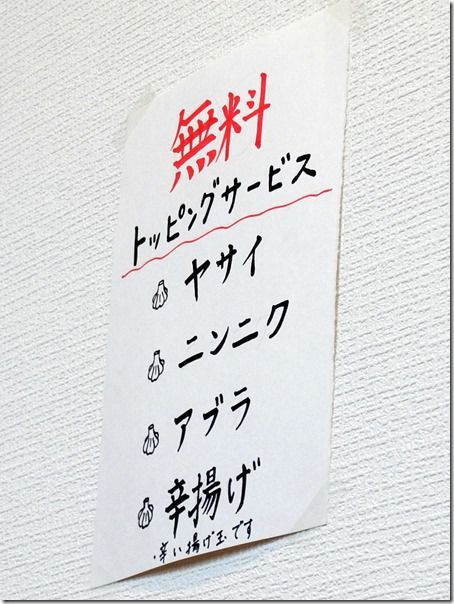 無料
トッピングサービス
ヤサイ
ニンニク
アブラ
辛揚げ
・辛い揚げ玉です